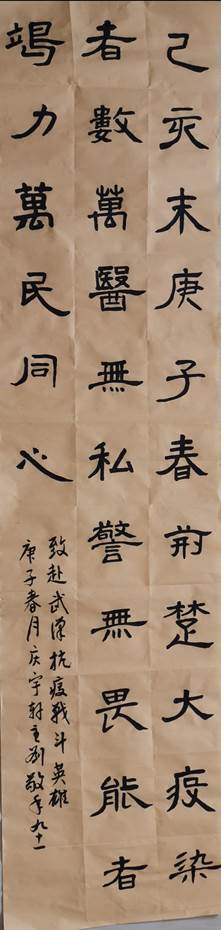 己亥末庚子春荊楚大疫染
者數萬醫無私警無畏能者
竭力萬民同心
致赴武漢抗疫戰斗英雄
庚子春月庆宇轩主刘敬手九十一